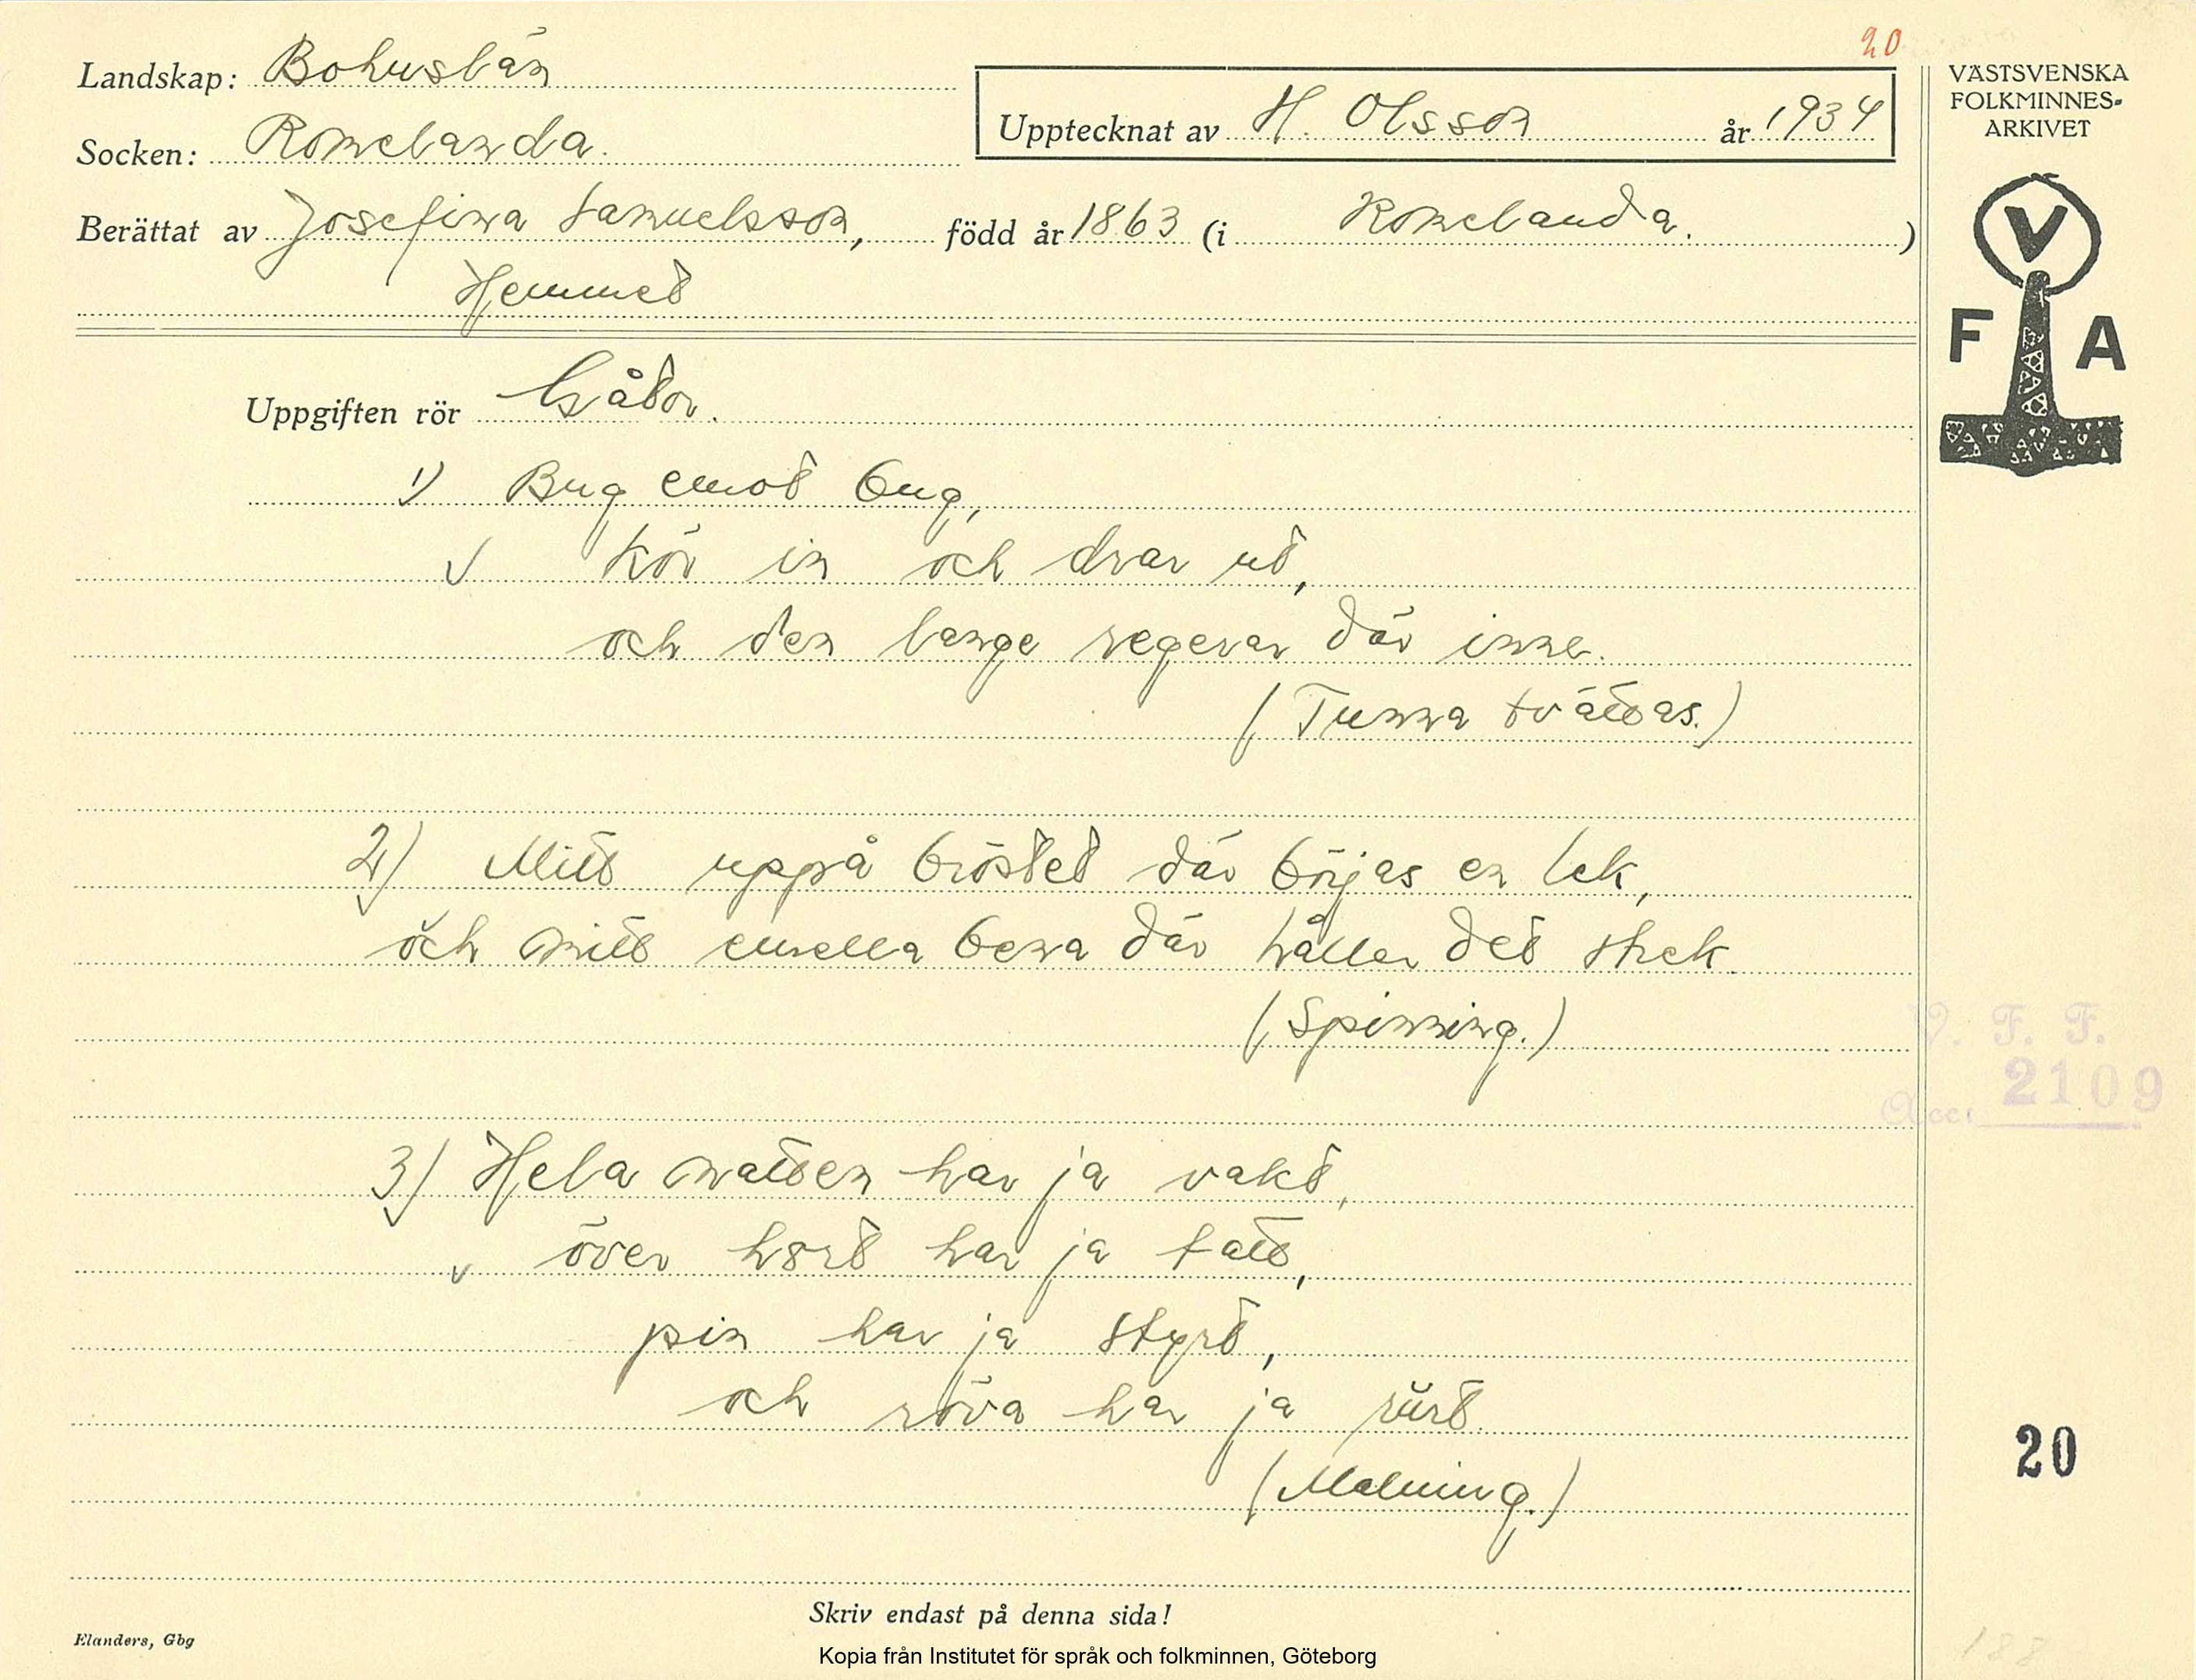 20
Landskap: Bohuslän
Socken: Romelanda.
Upptecknat av H. Olsson år 1934
Berättat av Josefina Samuelsson, född år 1863 (i Romelanda.)
Hemmet
VÄSTSVENSKA
FOLKMINNES-
ARKIVET
V
F A
Uppgiften rör Gåtor.
1) Bug emot bug,
kör in och drar ut,
och den lange regerar där inne.
(Tunna tvättas.)
2) Mitt uppå bröstet där börjas en lek,
och mitt emella bena där håller det strek.
(Spinning.)
V. F. F.
Acc. 2109
3) Hela natten har ja vakt,
över hort har ja tatt,
pin har ja styrt,
och röva har ja rürt.
(Malning.)
20
Skriv endast på denna sida!
Elanders, Gbg
Kopia från Institutet för språk och folkminnen, Göteborg
188